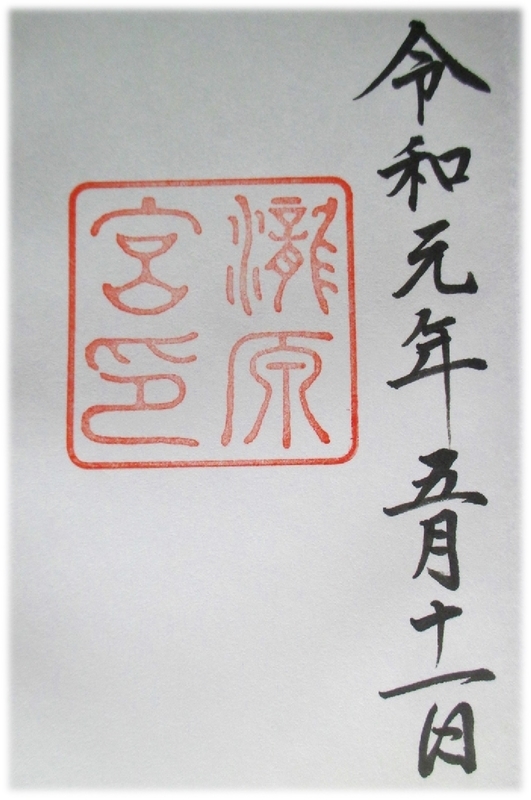 令和元年五月十一日
瀧原
宮印